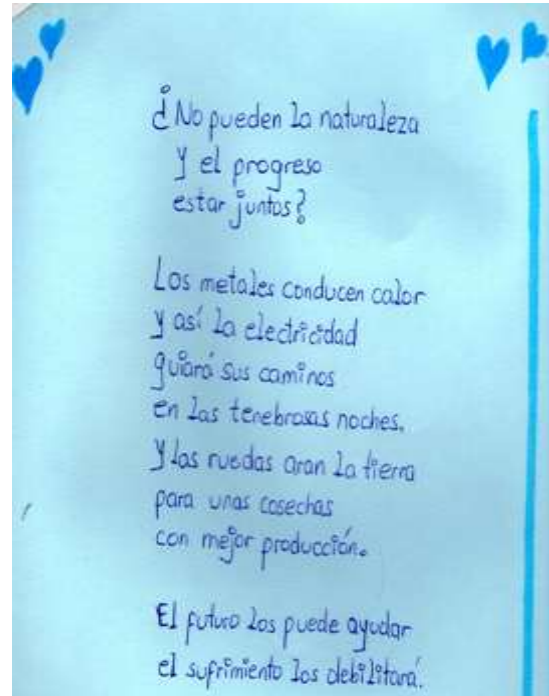 ¿No pueden la naturaleza
y el progreso
estar juntos?
Los metales conducen calor
y así la electricidad
guiará sus caminos
en las tenebrosas noches.
Y las ruedas aran la tierra
para unas cosechas
con mejor producción.
El futuro los puede ayudar
el sufrimiento los debilitará.